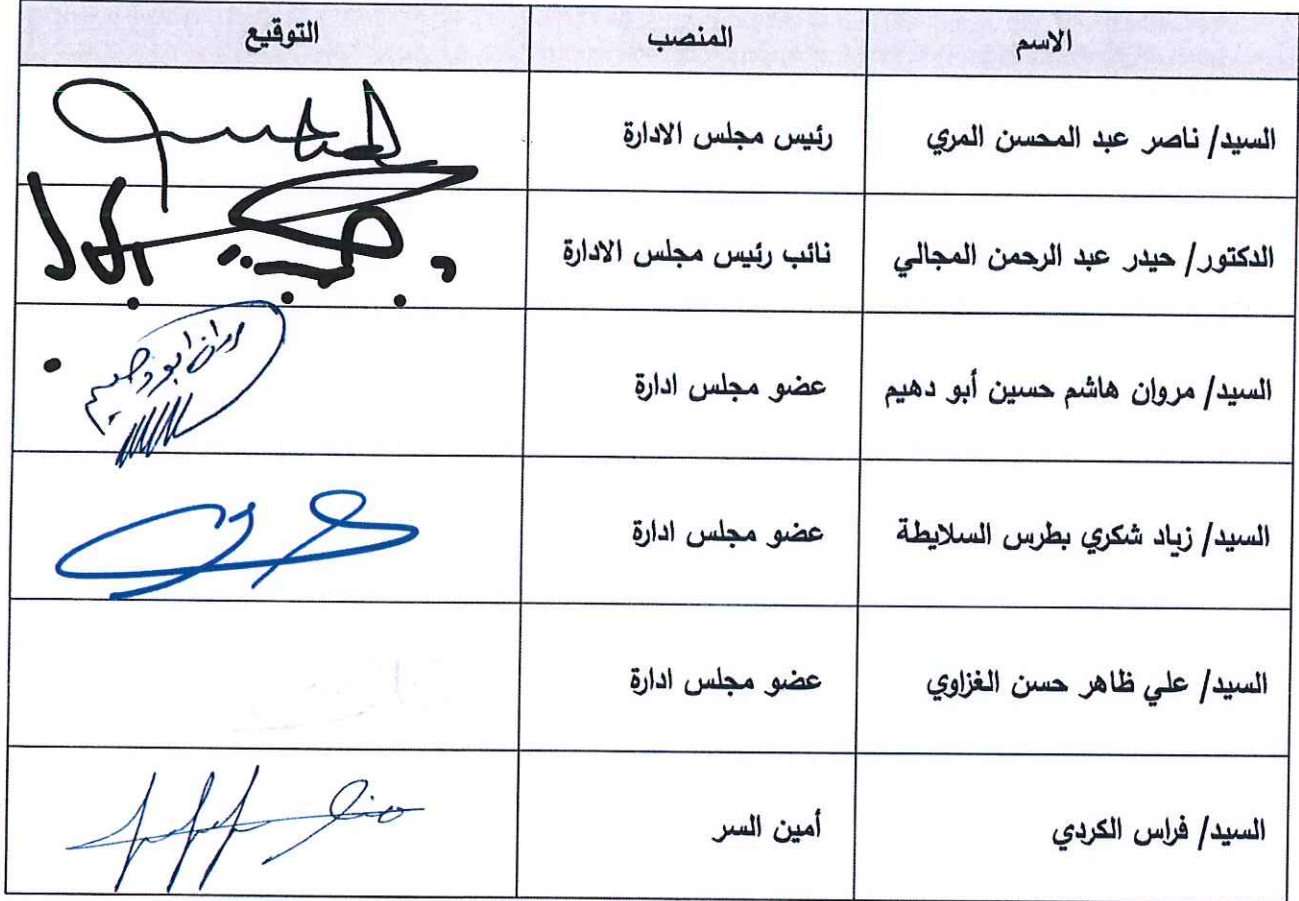 الاسم المنصب التوقيع
السيد/ ناصر عبد المحسن المري رئيس مجلس الادارة
الدكتور/ حيدر عبد الرحمن المجالي نائب رئيس مجلس الادارة
السيد/ مروان هاشم حسين أبو دهيم عضو مجلس ادارة
السيد/ زياد شكري بطرس السلايطة عضو مجلس ادارة
السيد/ علي ظاهر حسن الغزاوي عضو مجلس ادارة
السيد/ فراس الكردي أمين السر